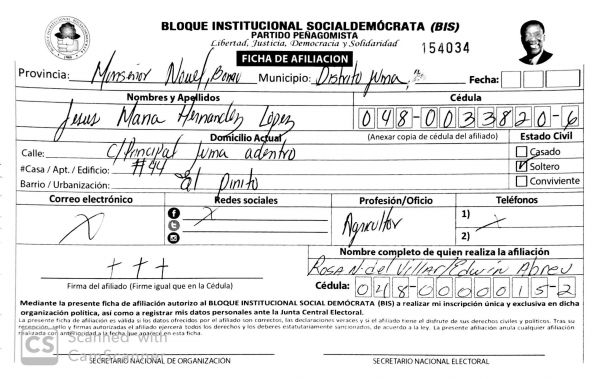 BLOQUE INSTITUCIONAL SOCIALDEMÓCRATA (BIS)
PARTIDO PEÑAGOMISTA
Libertad, Justicia, Democracia y Solidaridad
154034
FICHA DE AFILIACION
Provincia: Minseñor Nouel, Bonao Municipio: Distrito Juma, Fecha:
Nombres y Apellidos Cédula
Jesus Maria Hernandez Lopez 048-0033820-6
Domicilio Actual (Anexar copia de cédula del afiliado) Estado Civil
Calle: C/Principal Juma adentro Casado
#Casa / Apt. / Edificio: #44 Soltero
Barrio / Urbanización: El Pinito Conviviente
Correo electrónico Redes sociales Profesión/Oficio Teléfonos
X X Agricultor 1)
2)
Nombre completo de quien realiza la afiliación
+ + + Rosa N. del Villar/Edwin Abreu
Firma del afiliado (Firme igual que en la Cédula) Cédula: 048-0000015-2
Mediante la presente ficha de afiliación autorizo al BLOQUE INSTITUCIONAL SOCIAL DEMÓCRATA (BIS) a realizar mi inscripción única y exclusiva en dicha
organización política, así como a registrar mis datos personales ante la Junta Central Electoral.
La presente ficha de afiliación es valida si los datos ofrecidos por el afiliado son correctos, las declaraciones veraces y si el afiliado tiene el disfrute de sus derechos civiles y políticos. Tras su
recepción, sello y firmas autorizadas el afiliado ejercerá todos los derechos y los deberes estatutariamente sancionados, de acuerdo a la ley. La presente afiliación anula cualquier afiliación
realizada con anterioridad a la fecha que aparece en esta ficha.
CS Scanned with
CamScanner
SECRETARIO NACIONAL DE ORGANIZACIÓN SECRETARIO NACIONAL ELECTORAL